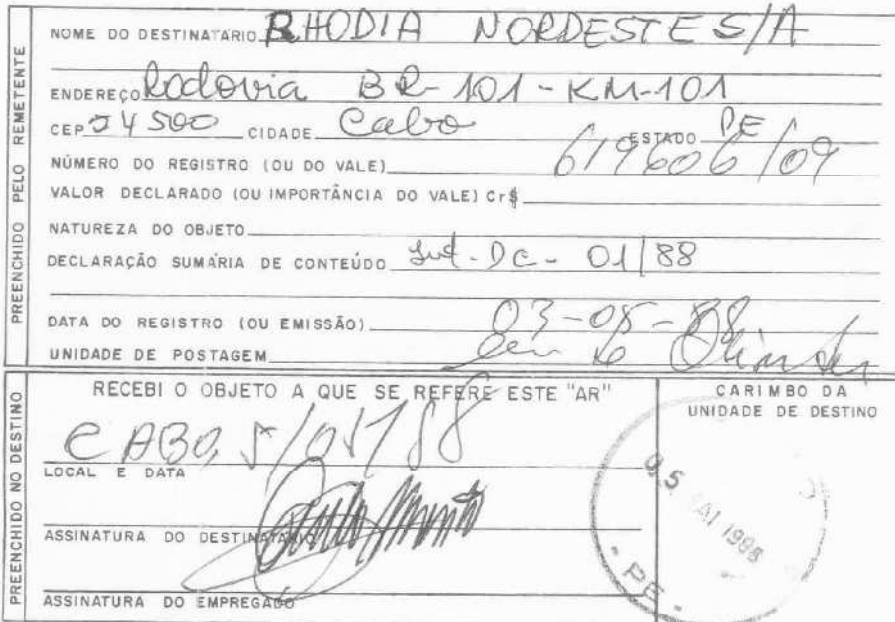 PREENCHIDO PELO REMETENTE
NOME DO DESTINATARIO RHODIA NORDESTE S/A
ENDEREÇO Rodovia BR-101-KM-101
CEP 54500 CIDADE Cabo ESTADO PE
NÚMERO DO REGISTRO (OU DO VALE) 619606/09
VALOR DECLARADO (OU IMPORTÂNCIA DO VALE) Cr$
NATUREZA DO OBJETO
DECLARAÇÃO SUMÁRIA DE CONTEÚDO DC- 01/88
DATA DO REGISTRO (OU EMISSÃO) 03-05-88
UNIDADE DE POSTAGEM Olinda
PREENCHIDO NO DESTINO
RECEBI O OBJETO A QUE SE REFERE ESTE "AR"
CABO, 5/05/88
LOCAL E DATA
ASSINATURA DO DESTINATARIO
ASSINATURA DO EMPREGADO
CARIMBO DA
UNIDADE DE DESTINO
05 MAI 1988
- PE -